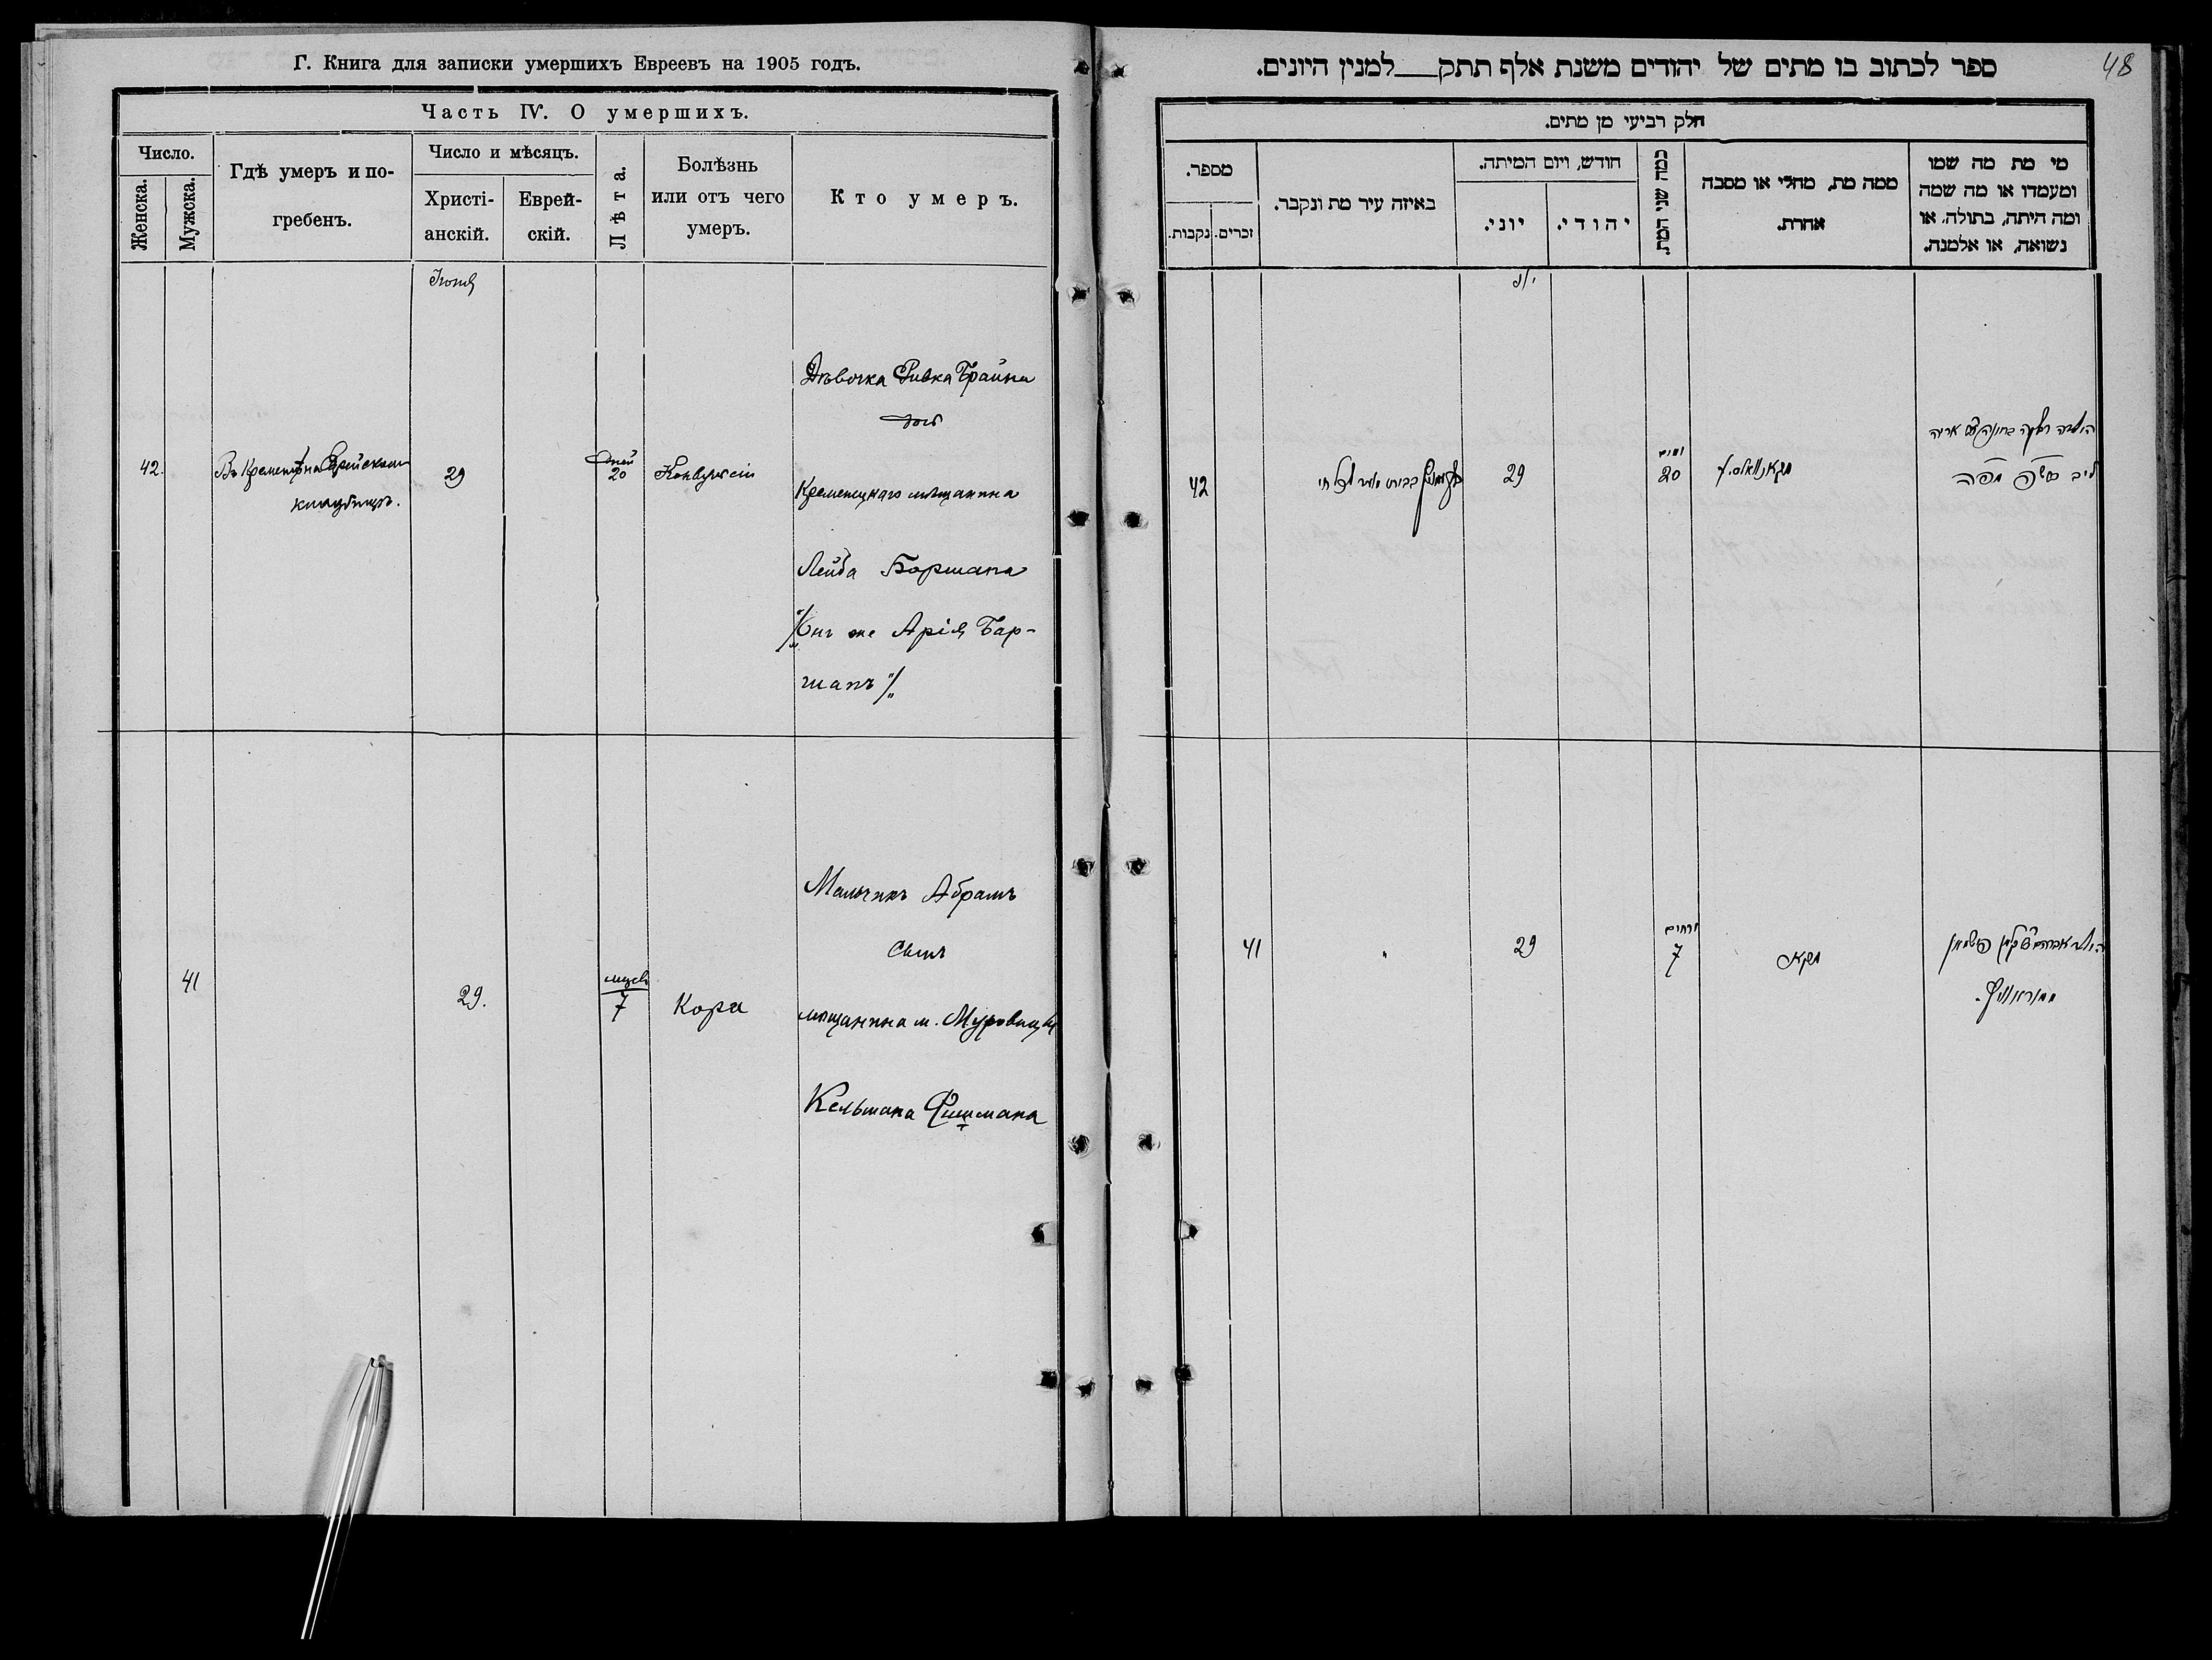 Г. Книга для записки умершихъ Евреевъ на 1905 годъ.
Часть IV. О умершихъ.
Число.
Женска.
Мужска.
Гдѣ умеръ и по-
гребенъ.
Число и мѣсяцъ.
Христі-
анскій.
Еврей-
скій.
Лѣта.
Болѣзнь
или отъ чего
умеръ.
Кто умеръ.
Іюня
42.
29
дней
20
Конвульсіи
Дѣвочка Ривка Брайна
дочь
Кременецкаго мѣщанина
Лейба Бормана
/Онъ же Арія Бар-
манъ/
41
29.
мѣсяц
7
Кора
Мальчикъ Абрамъ
сынъ
мѣщанина м. Муровицы
Кельмана Фишмана
48
ספר לכתוב בו מתים של יהודים משנת אלף תתק___למנין היונים.
חלק רביעי מן מתים.
מספר.
נקבות.
זכרים.
באיזה עיר מת ונקבר.
חודש, ויום המיתה.
יוני.
יהודי.
כמה שני המת.
ממה מת, מחלי או מסבה
אחרת.
מי מת מה שמו
ומעמדו או מה שמה
ומה היתה, בתולה, או
נשואה, או אלמנה.
42
29
ימים
20
41
"
29
ירחים
7